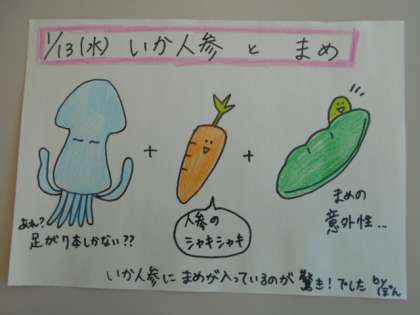 1/13(水) いか人参 と まめ
あれ?
足が9本しかない??
人参の
シャキシャキ
まめの
意外性...
いか人参に まめが入っているのが 驚き!でした by
ぽん